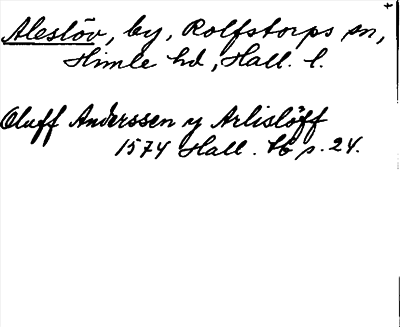 Aleslöv, by, Rolfstorps sn,
Himle hd, Hall. l.
Oluff Anderssen y Arlislöff
1574 Hall. Hb p. 24.